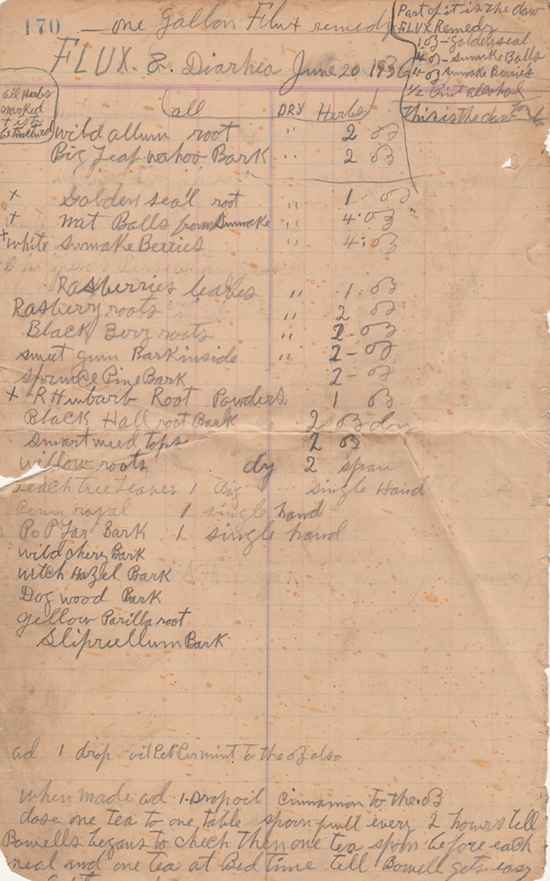 170 one Gallon Flux remedy
Part of it is the daw
FLUX Remedy
1 oz - Goldenseal
4 oz - Sumake Balls
4 oz Sumake Berries
alcohol
This is the daw
FLUX. & Diarhea June 20 1936
all Herbs
smoked
all DRY Herbs
wild allum root " 2 oz
Big Leaf wahoo Bark " 2 oz
+ Golden sea'l root " 1. oz
+ Nut Balls from Sumake " 4. oz
+ white Sumake Berries " 4. oz
Rasberries leaves " 1. oz
Rasbery roots " 2 oz
Black Bery roots " 2 - oz
sweet gum Bark inside " 2 - oz
Pine Bark 2 - oz
+ Rhubarb Root Powders 1 oz
Black Hall root Bark 2 oz
Smart weed tops 2 oz
willow roots dy 2 span
Peach tree Leaves 1 Big single Hand
1 single hand
PoPlar Bark 1. single hand
wild chery Bark
witch Hazel Bark
Dog wood Bark
yellow Parilla root
Bark
ad 1 drop oil PePermint to the oz also
when made ad 1. Drop oil Cinnamon to the. oz
dose one tea to one table spoon full every 2 hours tell
Bowells begans to check then one tea spoon before each
meal and one tea at Bed time tell Bowell gets easy